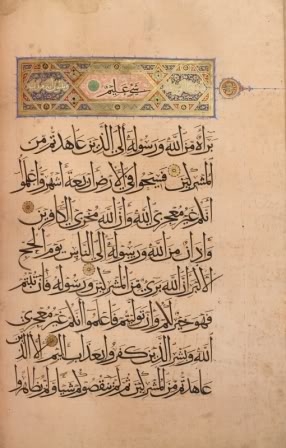 شيء عليم
براة من الله ورسوله الى الذين عاهدتم من
المشركين فسيحوا في الارض اربعة اشهر واعلموا
انكم غير معجزي الله وان الله مخزي الكافرين
واذان من الله ورسوله الى الناس يوم الحج
الاكبر ان الله بري من المشركين ورسوله فان تبتم
فهو خير لكم وان توليتم فاعلموا انكم غير معجزي
الله وبشر الذين كفروا بعذاب اليم الا الذين
عاهدتم من المشركين ثم لم ينقصوكم شيئا ولم يظاهروا